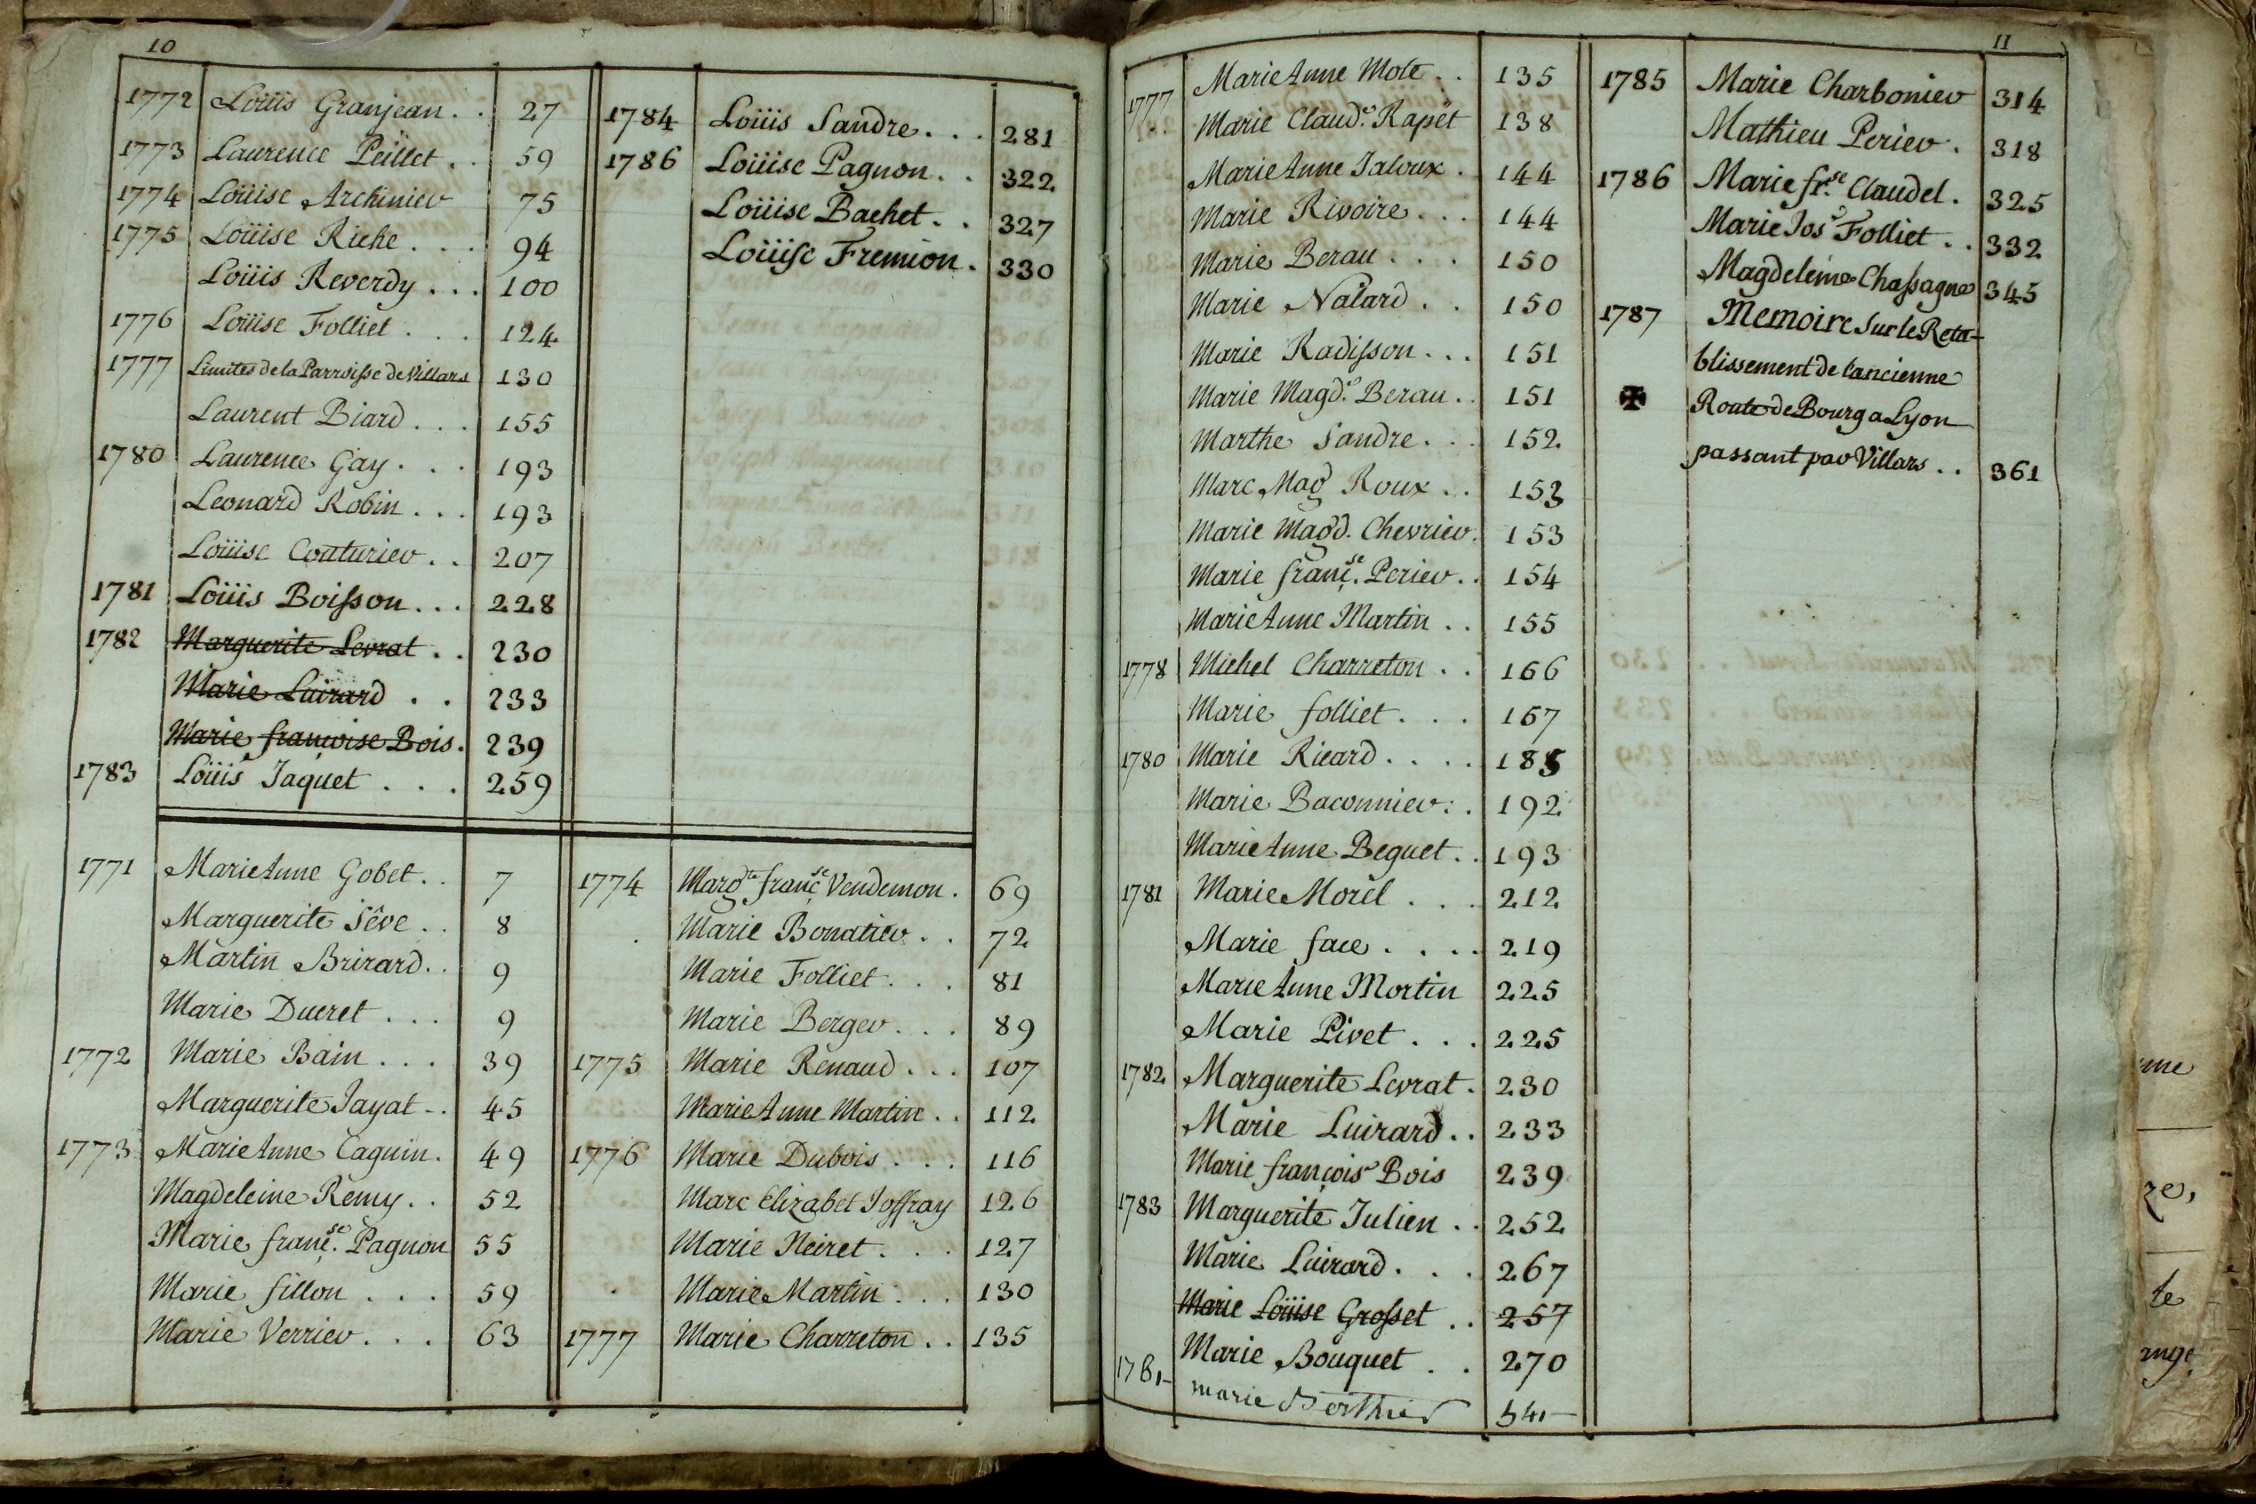 10
1772 Loüis Granjean . . 27
1773 Laurence Peillet . . 59
1774 Loüise Archinier 75
1775 Loüise Riche . . . 94
Loüis Reverdy . . . 100
1776 Loüise Folliet . . . 124
1777 Limites de la Parroisse de Villars 130
Laurent Biard . . . 155
1780 Laurence Gay . . . 193
Leonard Robin . . . 193
Loüise Couturier . . 207
1781 Loüis Boisson . . . 228
1782 Marguerite Levrat . . 230
Marie Luirard . . 233
Marie françoise Bois . 239
1783 Loüis Jaquet . . . 259
1784 Loüis Sandre . . . 281
1786 Loüise Pagnon . . 322
Loüise Bachet . . 327
Loüise Fremion . 330
1771 Marie Anne Gobet . . 7
Marguerite Sêve . . 8
Martin Brirard . . 9
Marie Ducret . . . 9
1772 Marie Bain . . . 39
Marguerite Jayat - . 45
1773 Marie Anne Caguin . 49
Magdeleine Remy . . 52
Marie franç.se Pagnon 55
Marie fillon . . . 59
Marie Verrier . . . 63
1774 Marg.te franç.se Vendemon . 69
Marie Bonatier . . 72
Marie Folliet . . . 81
Marie Berger . . . 89
1775 Marie Renaud . . . 107
Marie Anne Martin . . 112
1776 Marie Dubois . . . 116
Marc Elizabet Joffray 126
Marie Neiret . . . 127
Marie Martin . . . 130
1777 Marie Charreton . . 135
11
1777 Marie Anne Mole . . 135
Marie Claud.e Rapet 138
Marie Anne Jaloux . 144
Marie Rivoire . . . 144
Marie Berau . . . 150
Marie Nalard . . 150
Marie Radisson . . . 151
Marie Magd.e Berau . . 151
Marthe Sandre . . . 152
Marc Mag Roux . . 153
Marie Magd. Chevrier . 153
Marie franç.se Perier . . 154
Marie Anne Martin . . 155
1778 Michel Charreton . . 166
Marie folliet . . . 167
1780 Marie Ricard . . . . 185
Marie Baconnier : . 192
Marie Anne Beguet . . 193
1781 Marie Morel . . . 212
Marie face . . . . 219
Marie Anne Mortin 225
Marie Pivet . . . 225
1782 Marguerite Levrat . 230
Marie Luirard . . 233
Marie françois.e Bois 239
1783 Marguerite Julien . . 252
Marie Luirard . . . 267
Marie Loüise Grosset . . 257
Marie Bouquet . . 270
marie Berthier
1785 Marie Charbonier 314
Mathieu Perier . 318
1786 Marie fr.se Claudel . 325
Marie Jos.e Folliet . . 332
Magdeleine Chassagne 345
1787 Memoire sur le Reta-
blissement de l'ancienne
✠ Route de Bourg a Lyon
passant par Villars . . 361